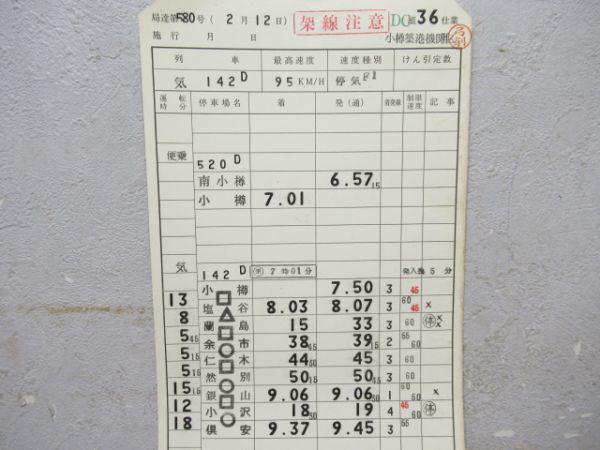 局達第580号 (2月12日) 架線注意 DC組36仕業
施行 月 日 小樽築港機関区
列 車 最高速度 速度種別 けん引定数
気 142D 95KM/H 停気F1
運転時分 停車場名 着 発(通) 着発線 制限速度 記事
便乗 520D
南小樽 6.57 15
小樽 7.01
気 142D 7時01分 発入換5分
小樽 7.50 3 45
13 塩谷 8.03 8.07 3 60 45 ×
8 蘭島 15 33 3 60 ××
5 45 余市 38 45 39 15 2 55 60
5 15 仁木 44 50 45 3 60
5 15 然別 50 15 50 45 3 60
15 15 銀山 9.06 9.06 30 1 60 50 ×
12 小沢 18 30 19 4 45 60
18 倶安 9.37 9.45 3 55